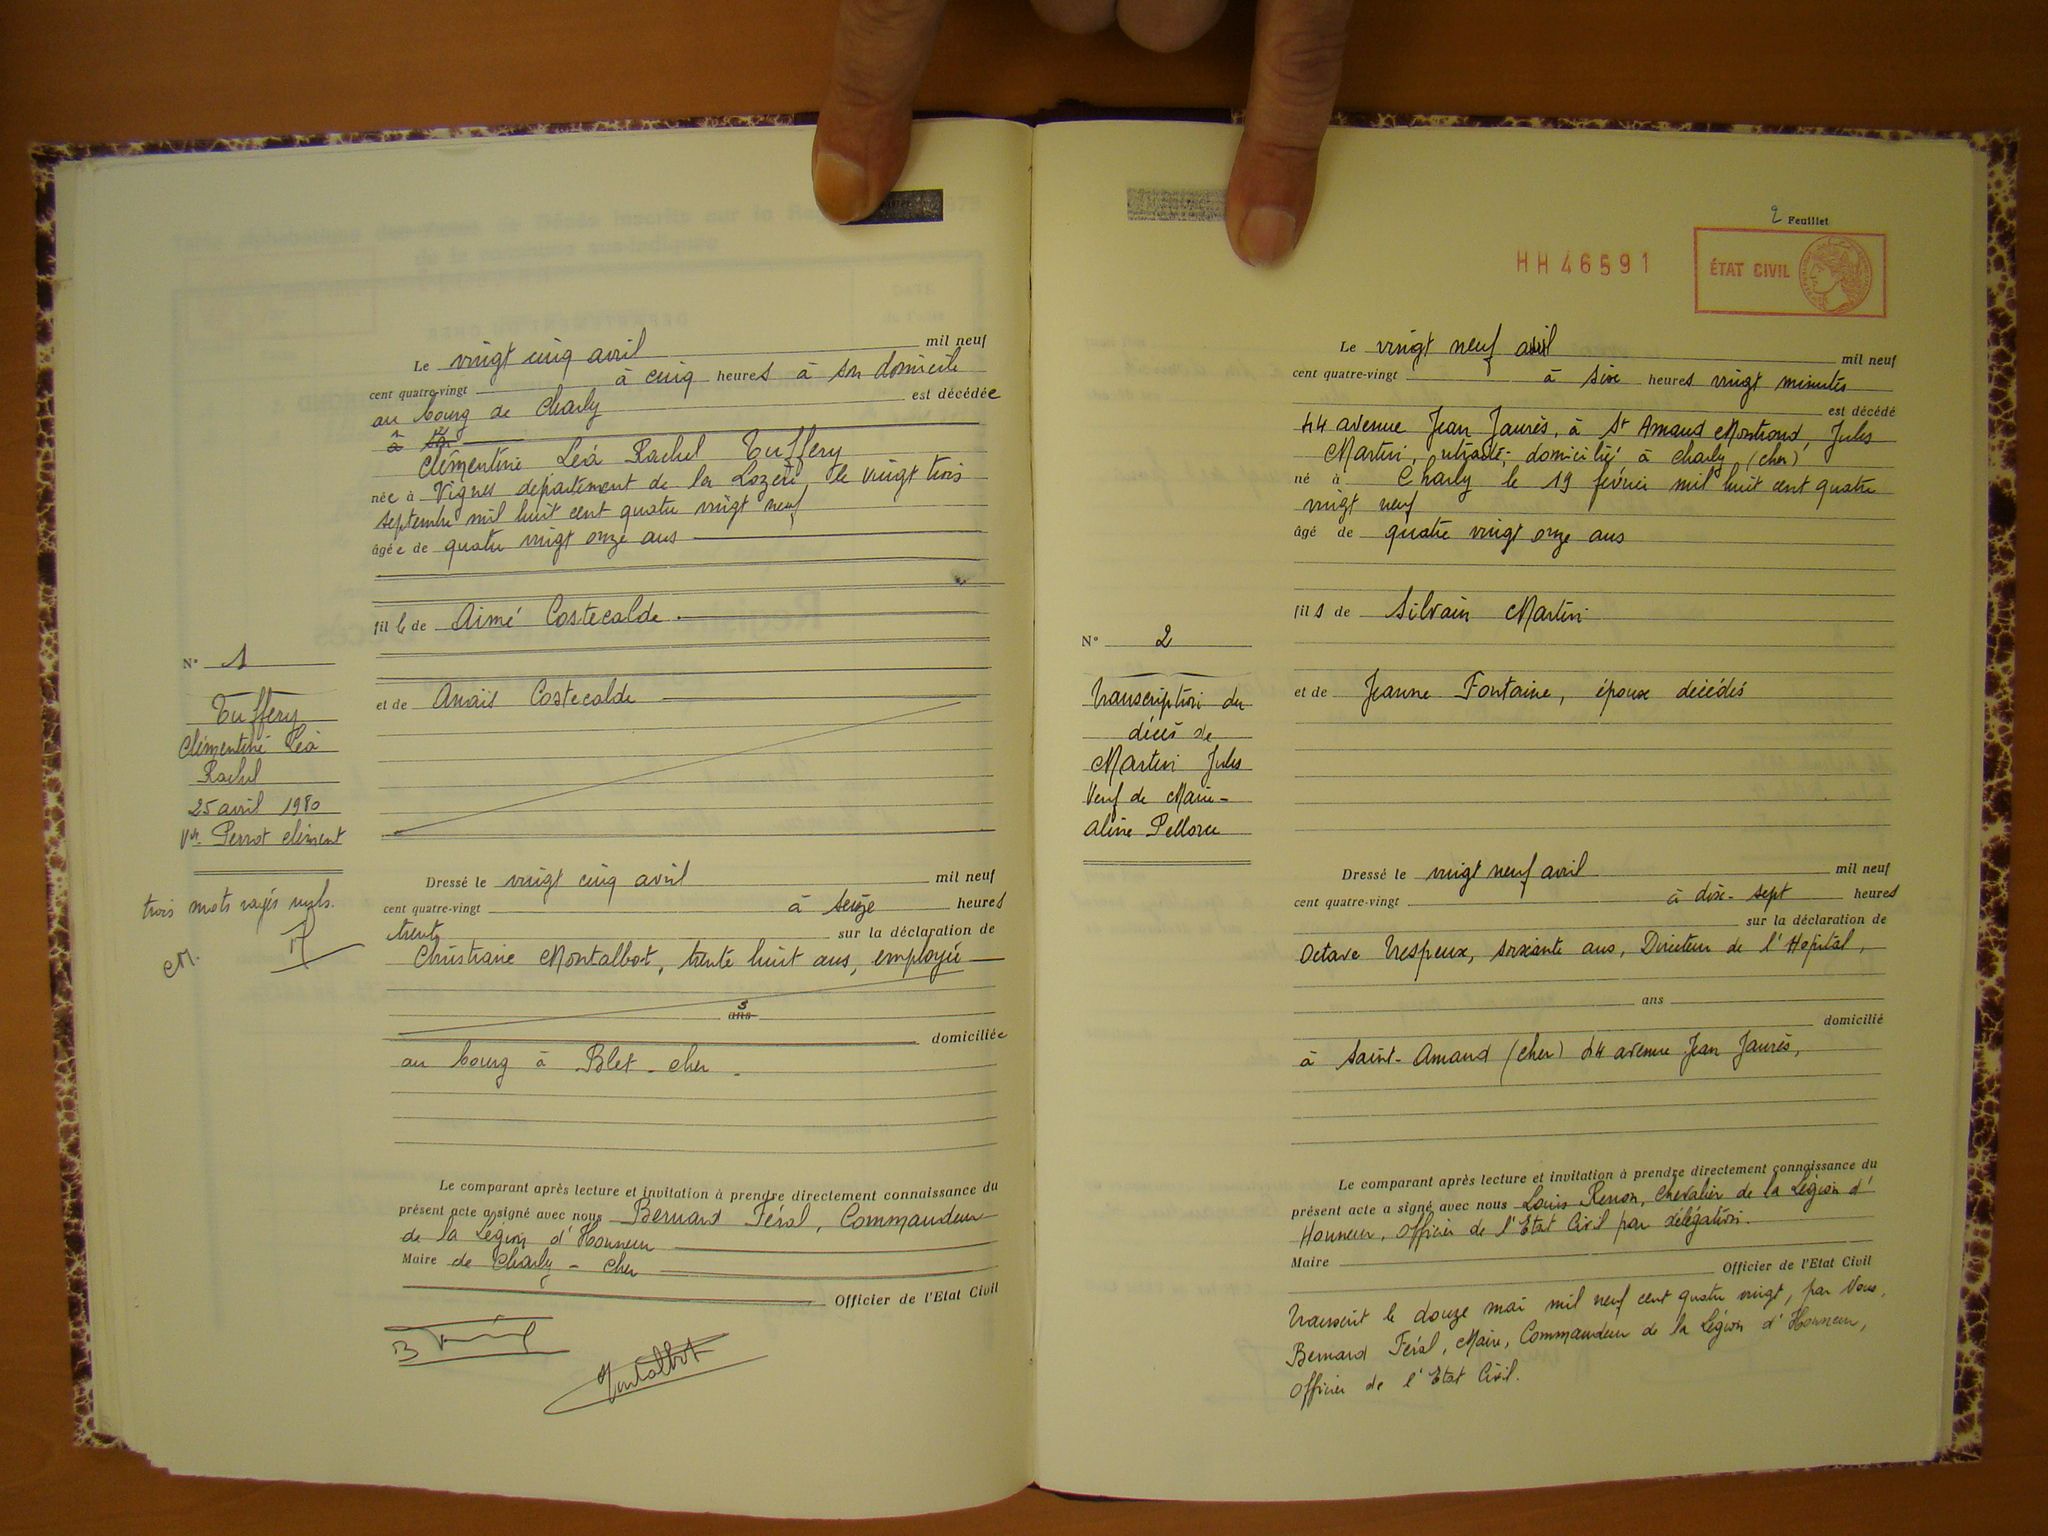 Le vingt cinq avril mil neuf
cent quatre-vingt à cinq heures à son domicile
au bourg de Charly est décédée
Clémentine Léa Rachel Tuffery
née à Vignes département de la Lozère, le vingt trois
septembre mil huit cent quatre vingt neuf
âgée de quatre vingt onze ans
fille de Aimé Costecalde.
et de Anaïs Costecalde
N° 1
Tuffery
Clémentine Léa
Rachel
25 avril 1980
Vve Perrot clément
trois mots rayés nuls.
CM.
Dressé le vingt cinq avril mil neuf
cent quatre-vingt à seize heures
trente sur la déclaration de
Christiane Montalbot, trente huit ans, employée
ans
domiciliée
au bourg à Blet - cher -
Le comparant après lecture et invitation à prendre directement connaissance du
présent acte a signé avec nous Bernard Féral, Commandeur
de la Légion d'Honneur
Maire de Charly - Cher
Officier de l'Etat Civil
Montalbot
2 Feuillet
HH 46591
ÉTAT CIVIL
Le vingt neuf avril mil neuf
cent quatre-vingt à six heures vingt minutes
est décédé
44 avenue Jean Jaurès, à St Amand Montrond, Jules
Martin, retraité, domicilié à Charly (cher)
né à Charly le 19 février mil huit cent quatre
vingt neuf
âgé de quatre vingt onze ans
fils de Silvain Martin
et de Jeanne Fontaine, époux décédés
N° 2
Transcription du
décès de
Martin Jules
Veuf de Marie-
Aline
Dressé le vingt neuf avril mil neuf
cent quatre-vingt à dix-sept heures
sur la déclaration de
Octave Trespeux, soixante ans, Directeur de l'Hopital,
ans
domicilié
à Saint-Amand (cher) 44 avenue Jean Jaurès,
Le comparant après lecture et invitation à prendre directement connaissance du
présent acte a signé avec nous Louis Renon, Chevalier de la Légion d'
Honneur, Officier de l'Etat Civil par délégation.
Maire
Officier de l'Etat Civil
Transcrit le douze mai mil neuf cent quatre vingt, par Nous,
Bernard Féral, Maire, Commandeur de la Légion d'Honneur,
Officier de l'Etat Civil.